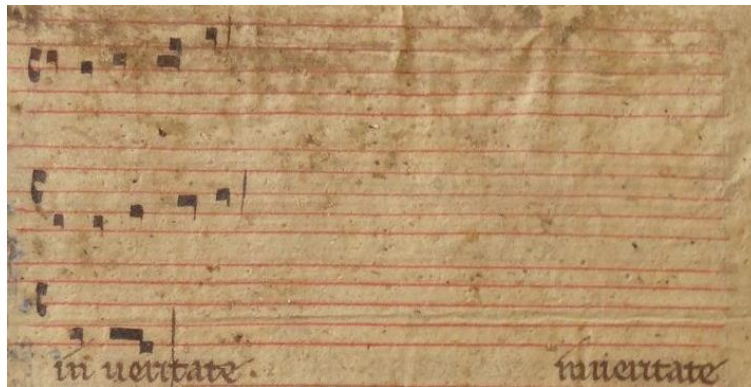 in veritate. inveritate